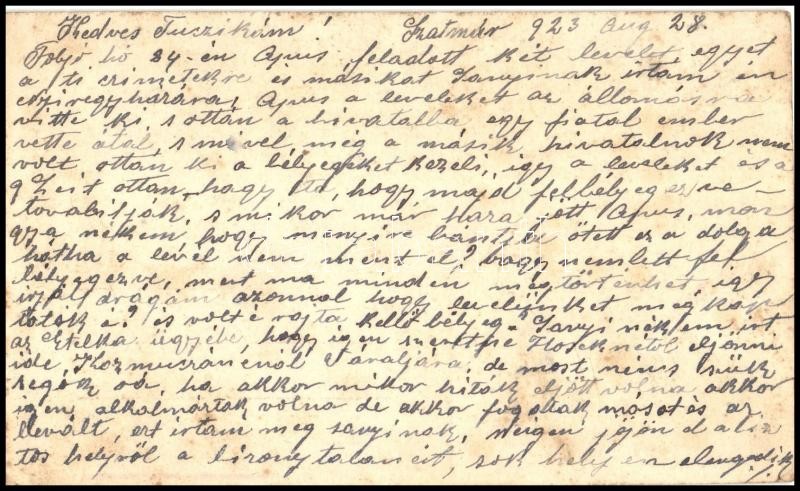 Kedves Tuczikám! Szatmár 923 Aug 28.
Folyó hó 24-én Apus feladott két levelet, egyet
a ti czimetekre és másikat Sanyinak irtam én
Nyiregyházára, Apus a leveleket az állomásra
vitte ki s ottan a hivatalba egy fiatal ember
vette átal, s mivel, még a másik hivatalnok nem
volt ottan ki a bélyegeket kezeli, igy a leveleket és a
9 Leit ottan hagyta, hogy majd felbélyegezve
továbitják, s mikor már haza jött Apus, mon
gya nékem hogy menyire bántja ötet ez a dolog a
hátha a levél nem ment el? vagy nem lett fel
bélyegezve, mert ma minden megtörténhet, igy
irjál drágám azonnal hogy levelünket megkap
tátok é? és volt é rajta kellő bélyeg. Sanyi nékem irt
az Etelka ügyébe, hogy igen szeretne eljönni
ide, Kozmuczánénál Váraljára, de most nincs szük
ségök rá, ha akkor mikor hiták eljött volna akkor
igen alkalmázták volna de akkor fogattak másat és az
bevált, ezt irtam meg Sanyinak, jöjön
tos helyről a bizonytalanért, sok helyen